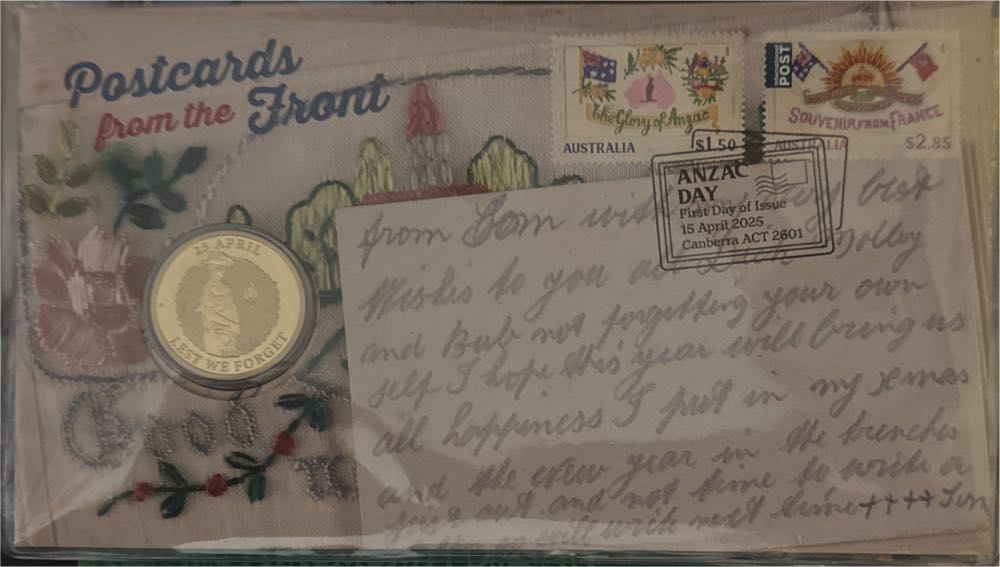 Postcards
from the Front
The Glory of Anzac
AUSTRALIA $1.50
International
POST
SOUVENIR FROM FRANCE
AUSTRALIA $2.85
ANZAC
DAY
First Day of Issue
15 April 2025
Canberra ACT 2601
25 APRIL
LEST WE FORGET
Good
from Tom with very best
Wishes to you all Dick Molley
and Bub not forgetting your own
self I hope this year will bring us
all happiness I put in my xmas
and the new year in the trenches
just out and not time to write a
so will write next time ++++ Tom